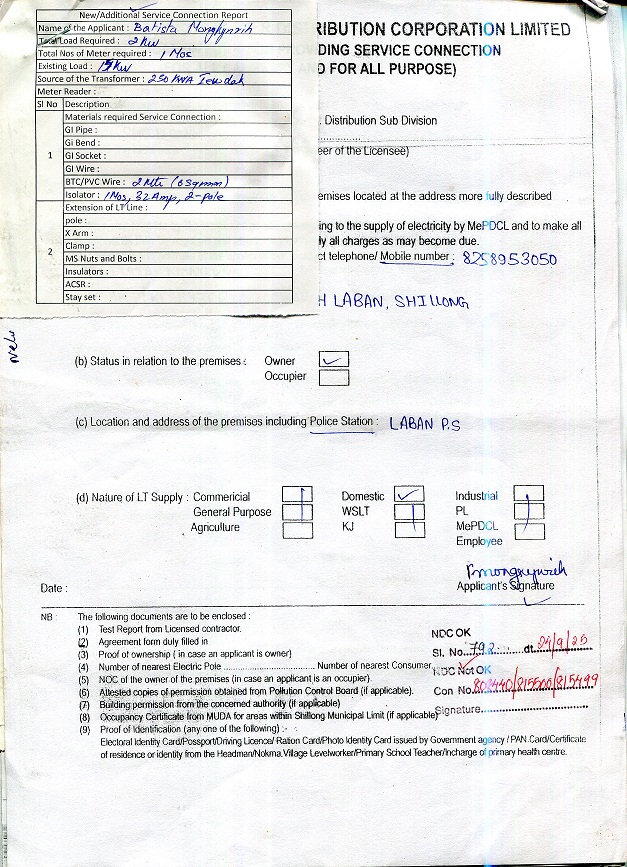 New/Additional Service Connection Report
Name of the Applicant : Batista Mongkynrih
Total Load Required : 2 KW
Total Nos of Meter required : 1 Nos
Existing Load : 15 KW
Source of the Transformer : 250 KVA
Meter Reader :
Sl No Description
Materials required Service Connection :
GI Pipe :
Gi Bend :
1 GI Socket :
GI Wire :
BTC/PVC Wire : 2 Mts (6 sqmm)
Isolator : 1 Nos, 32 Amp, 2-pole
Extension of LT Line :
pole :
X Arm :
2 Clamp :
MS Nuts and Bolts :
Insulators :
ACSR :
Stay set :
RIBUTION CORPORATION LIMITED
DING SERVICE CONNECTION
D FOR ALL PURPOSE)
. Distribution Sub Division
eer of the Licensee)
emises located at the address more fully described
ing to the supply of electricity by MePDCL and to make all
ly all charges as may become due.
ct telephone/ Mobile number : 8258953050
H LABAN, SHILLONG
New
(b) Status in relation to the premises : Owner ✓
Occupier
(c) Location and address of the premises including Police Station : LABAN P.S
(d) Nature of LT Supply : Commericial Domestic ✓ Industrial
General Purpose WSLT PL
Agriculture KJ MePDCL
Employee
Date :
Applicant's Signature
NB : The following documents are to be enclosed :
(1) Test Report from Licensed contractor.
(2) Agreement form duly filled in
(3) Proof of ownership ( in case an applicant is owner)
(4) Number of nearest Electric Pole .............................. Number of nearest Consumer
(5) NOC of the owner of the premises (in case an applicant is an occupier).
(6) Attested copies of permission obtained from Pollution Control Board (if applicable).
(7) Building permission from the concerned authority (if applicable)
(8) Occupancy Certificate from MUDA for areas within Shillong Municipal Limit (if applicable)
(9) Proof of Identification (any one of the following) :-
Electoral Identity Card/Possport/Driving Licence/ Ration Card/Photo Identity Card issued by Government agency / PAN Card/Certificate
of residence or identity from the Headman/Nokma.Village Levelworker/Primary School Teacher/Incharge of primary health centre.
NDC OK
Sl. No. 792 dt. 24/9/25
NDC Not OK
Con No. 802440/815500/815499
Signature